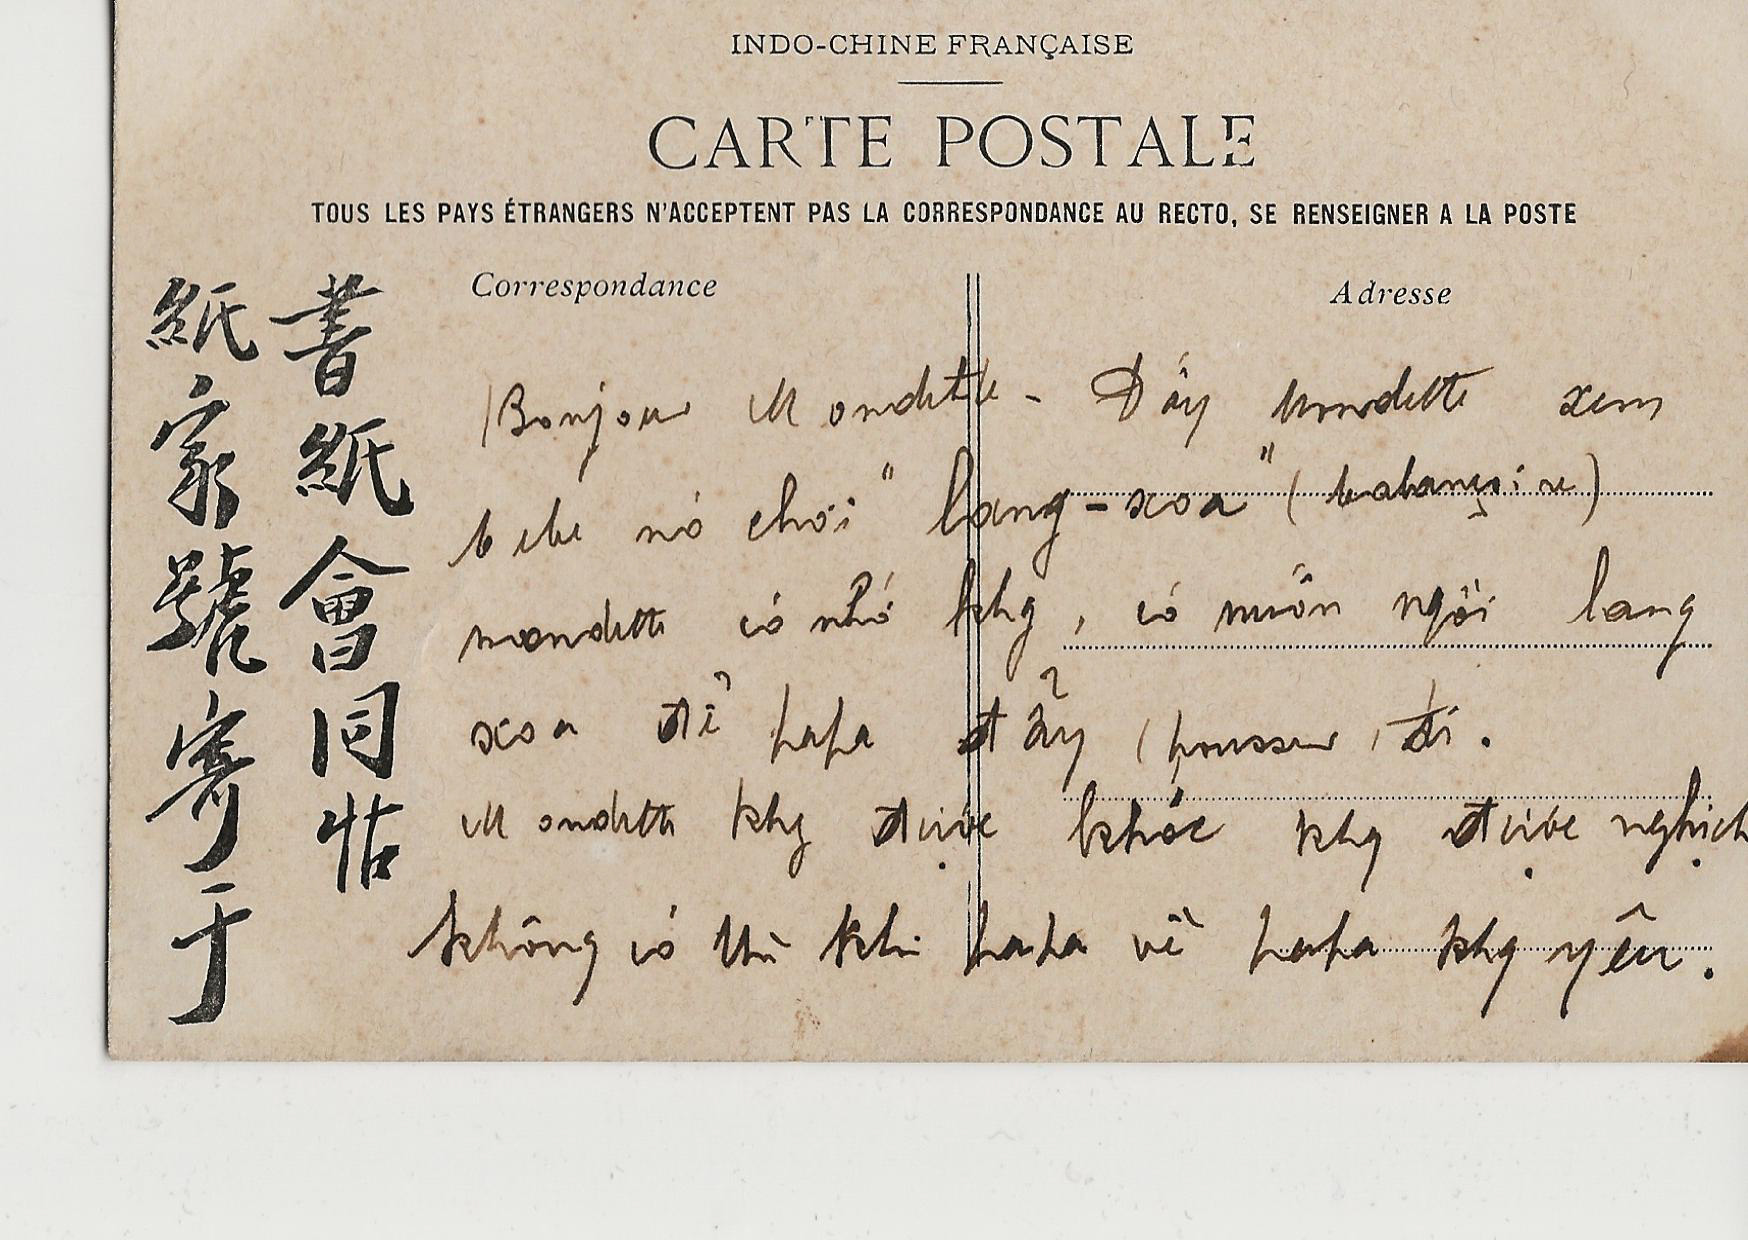 INDO-CHINE FRANÇAISE
CARTE POSTALE
TOUS LES PAYS ÉTRANGERS N'ACCEPTENT PAS LA CORRESPONDANCE AU RECTO, SE RENSEIGNER A LA POSTE
Correspondance
Adresse
書紙會同帖
紙家號寄于
Bonjour Mondette - Đây mondette xem
bebe nó chơi "lang-xoa" (balançoire)
mondette có nhớ khg, có muốn ngồi lang
xoa để papa đẩy (pousser) đi.
Mondette khg được khóc khg được nghịch
không có thì khi papa về papa khg yêu.